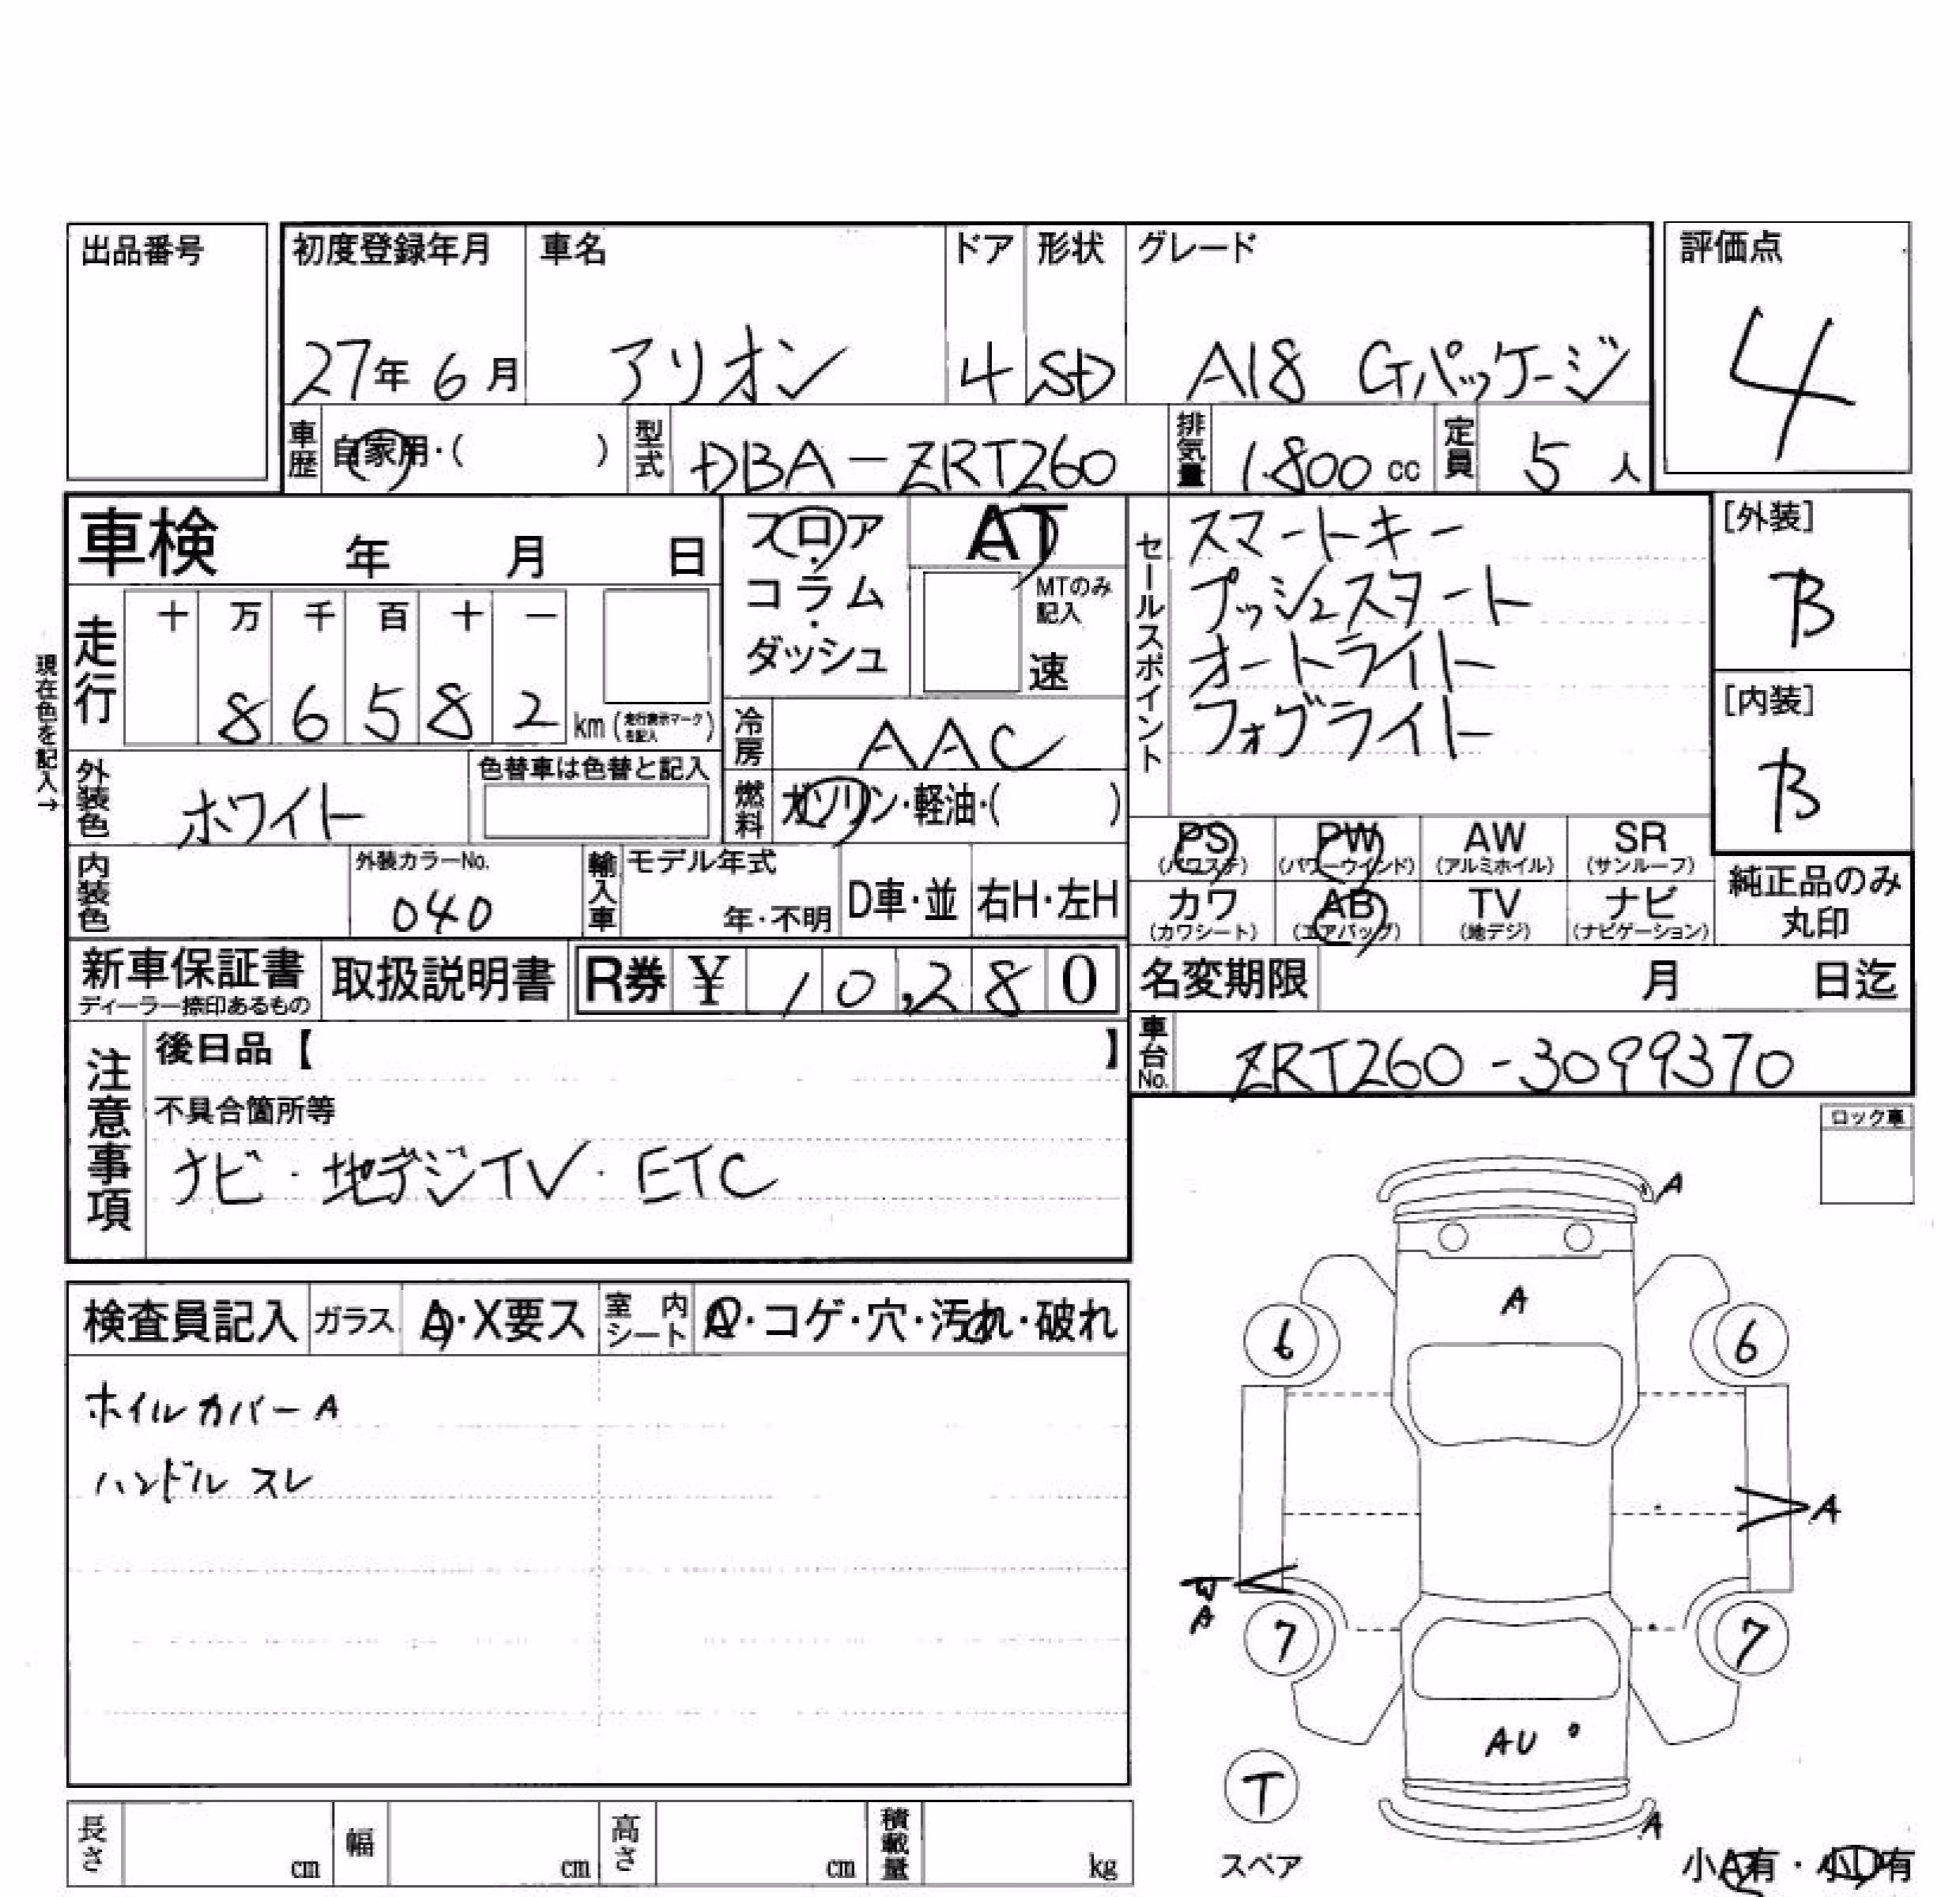 出品番号
初度登録年月 車名 ドア 形状 グレード 評価点
27年 6月 アリオン 4 SD A18 Gパッケージ 4
車歴 自家用・( ) 型式 DBA-ZRT260 排気量 1.800 cc 定員 5 人
車検 年 月 日
フロア・コラム・ダッシュ
AT
MTのみ記入
速
セールスポイント
スマートキー
プッシュスタート
オートライト
フォグライト
[外装]
B
[内装]
B
現在色を記入→
走行 十 万 千 百 十 一
8 6 5 8 2 km (走行表示マークを記入)
冷房 AAC
燃料 ガソリン・軽油・( )
外装色 ホワイト 色替車は色替と記入
内装色 外装カラーNo. 040
輸入車 モデル年式 年・不明 D車・並 右H・左H
PS (パワステ) PW (パワーウインド) AW (アルミホイル) SR (サンルーフ)
カワ (カワシート) AB (エアバッグ) TV (地デジ) ナビ (ナビゲーション)
純正品のみ丸印
新車保証書 ディーラー捺印あるもの 取扱説明書 R券 ¥ 10,280
名変期限 月 日迄
車台No. ZRT260-3099370
注意事項
後日品【 】
不具合箇所等
ナビ・地デジTV・ETC
ロック車
検査員記入 ガラス A・X要ス 室内シート A・コゲ・穴・汚れ・破れ
ホイルカバーA
ハンドル スレ
A
A
6 6
A
W
A
7 7
AU
T
スペア
A
小A有・小U有
長さ cm 幅 cm 高さ cm 積載量 kg